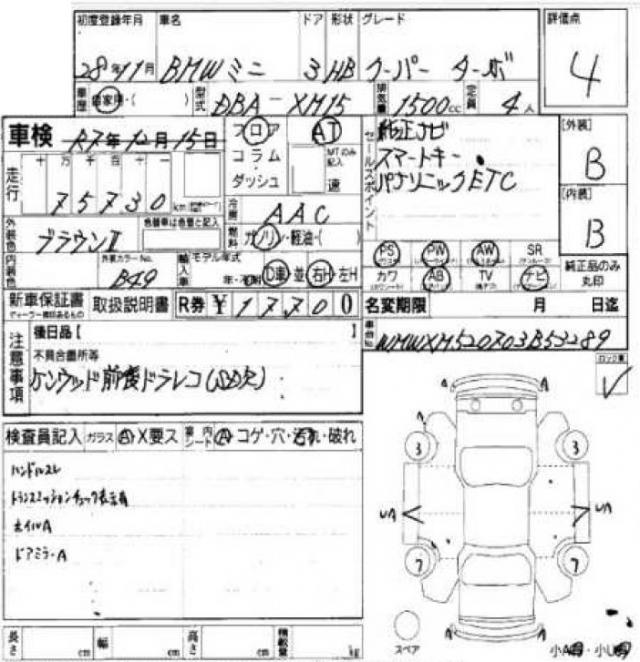 初度登録年月 車名 ドア 形状 グレード 評価点
28年11月 BMWミニ 3 HB クーパー ターボ 4
車歴 自家用・( ) 型式 DBA-XM15 排気量 1500cc 定員 4人
車検 R7年12月15日 フロア AT セールスポイント 純正ナビ [外装]
コラム MTのみ記入 スマートキー B
走行 十万千百十一 ダッシュ 速 パナソニックETC
75730 km 冷房 AAC [内装]
外装色 ブラウンII 色替車は色番と記入 燃料 ガソリン・軽油・( ) B
PS PW AW SR
内装色 外装カラーNo. B49 輸入車 モデル年式 年・不明 D車 並 右H・左H カワ AB TV ナビ 純正品のみ丸印
新車保証書 取扱説明書 R券 ¥17700 名変期限 月 日迄
ディーラー捺印あるもの
注意事項 後日品 [ ] 車台No. WMWXM520703B53289
不具合箇所等
ケンウッド前後ドラレコ(SD欠)
検査員記入 ガラス A X要ス 室内 シート A コゲ・穴・汚れ・破れ
ハンドルスレ
トランスミッションチェック表示有
ホイルA
ドアミラーA
A A
3 3
UA UA
7 7
A A
スペア
長さ cm 幅 cm 高さ cm 積載量 kg